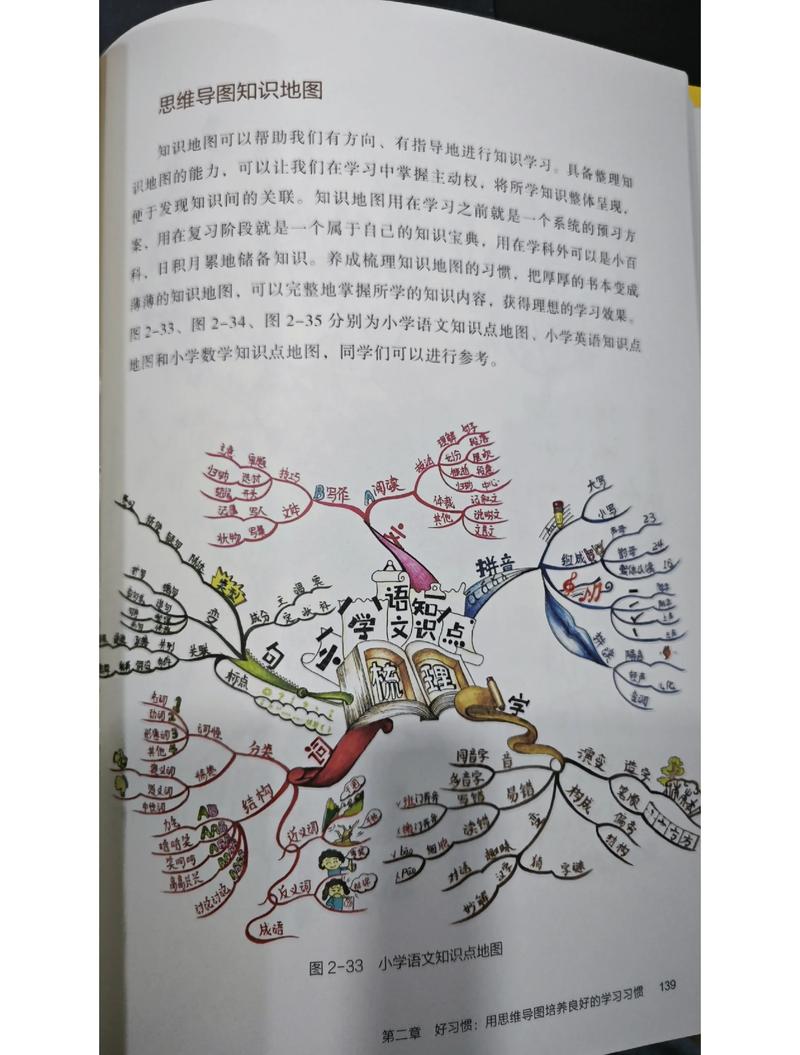 思维导图知识地图
知识地图可以帮助我们有方向、有指导地进行知识学习。具备整理知
识地图的能力，可以让我们在学习中掌握主动权，将所学知识整体呈现，
便于发现知识间的关联。知识地图用在学习之前就是一个系统的预习方
案，用在复习阶段就是一个属于自己的知识宝典，用在学科外可以是小百
科，日积月累地储备知识。养成梳理知识地图的习惯，把厚厚的书本变成
薄薄的知识地图，可以完整地掌握所学的知识内容，获得理想的学习效果。
图 2-33、图 2-34、图 2-35 分别为小学语文知识点地图、小学英语知识点
地图和小学数学知识点地图，同学们可以进行参考。
小学语文知识点
梳理
文
B写作
技巧
文体
写人
写景
状物
A阅读
技法
理解
句子
段落
划分
层次
归纳
中心
体裁
记叙文
说明文
其他
拼音
大写
小写
组成
声母
23
韵母
24
整体认读
16
拼读
字
音
同音字
多音字
易错
写错
读错
变
趣味
汉字
猜
字谜
构成
演变
造字
笔顺
偏旁
结构
句
变
成分
关联
标点
词
分类
词性
名词
动词
形容词
其他
情感
褒义词
贬义词
中性词
结构
AB
笑呵呵
高高兴兴
讨论讨论
近义词
反义词
成语
图 2-33 小学语文知识点地图
第二章 好习惯：用思维导图培养良好的学习习惯 139